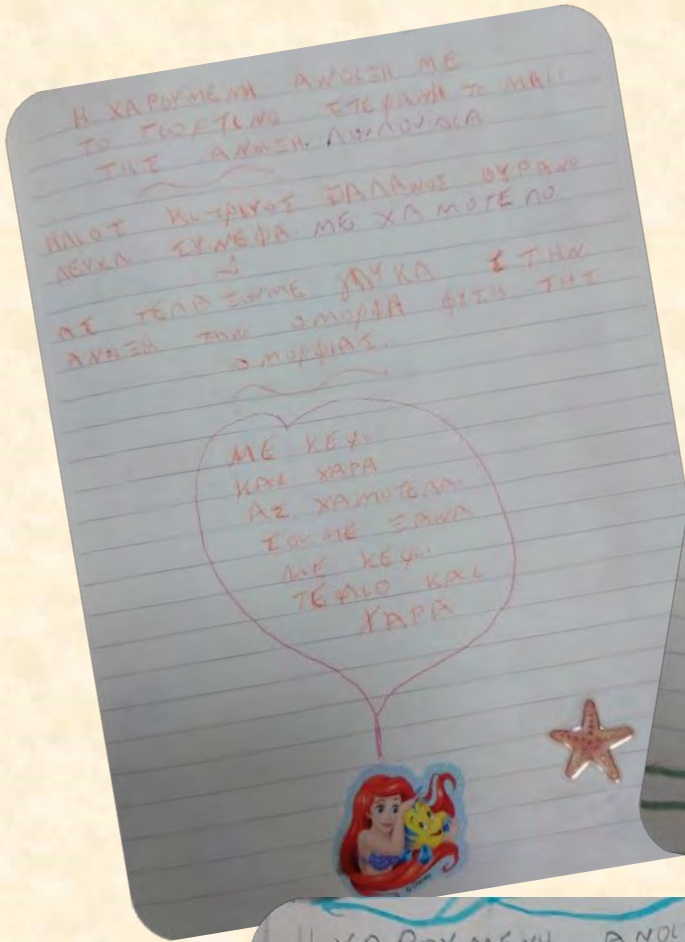 Η ΧΑΡΟΥΜΕΝΗ ΑΝΟΙΞΗ ΜΕ
ΤΟ ΓΙΟΡΤΙΝΟ ΣΤΕΦΑΝΗ ΤΟ ΜΑΙΙ
ΤΗΣ ΑΝΟΙΞΗ. ΛΟΥΛΟΥΔΙΑ
ΗΛΙΟΣ ΚΙΤΡΙΝΟΣ ΓΑΛΑΝΟΣ ΟΥΡΑΝΟ
ΛΕΥΚΑ ΣΥΝΕΦΑ ΜΕ ΧΑΜΟΓΕΛΟ.
ΑΣ ΓΕΛΑΣΟΥΜΕ ΓΛΥΚΑ ΣΤΗΝ
ΑΝΟΙΞΗ ΤΗΝ ΟΜΟΡΦΑ ΦΥΣΗ ΤΗΣ
ΟΜΟΡΦΙΑΣ.
ΜΕ ΚΕΦΙ
ΚΑΙ ΧΑΡΑ
ΑΣ ΧΑΜΟΓΕΛΑ
ΣΟΥΜΕ ΞΑΝΑ
ΜΕ ΚΕΦΙ
ΓΕΛΙΟ ΚΑΙ
ΧΑΡΑ
Η ΧΑΡΟΥΜΕΝΗ ΑΝΟΙ